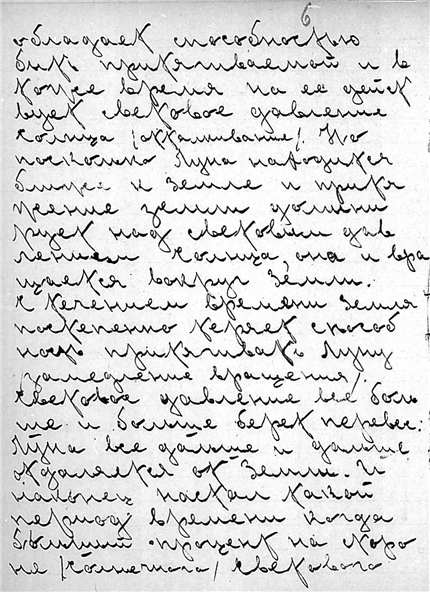 6
обладает способностью
быть притягиваемой и в
тоже время на её дейст
вует световое давление
солнца /отталкивание/. Но
поскольку Луна находится
ближе к Земле и притя
жение земли домини
рует над световым дав
лением солнца, она и вра
щается вокруг Земли.
С течением времени Земля
постепенно теряет способ
ность притягивать Луну
/замедление вращения/.
Световое давление всё боль
ше и больше берет перевес:
Луна все дальше и дальше
отдаляется от Земли. И
наконец настал какой
период времени когда
больший процент на сторо
не /солнечного/ светового